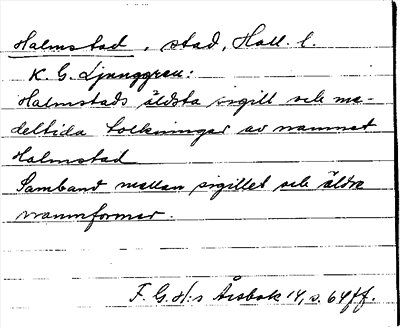 Halmstad, stad, Hall. l.
K. G. Ljunggren:
Halmstads äldsta sigill och me-
deltida tolkningar av namnet
Halmstad
Samband mellan sigillet och äldre
namnformer.
F. G. H:s Årsbok 14, s. 64 ff.